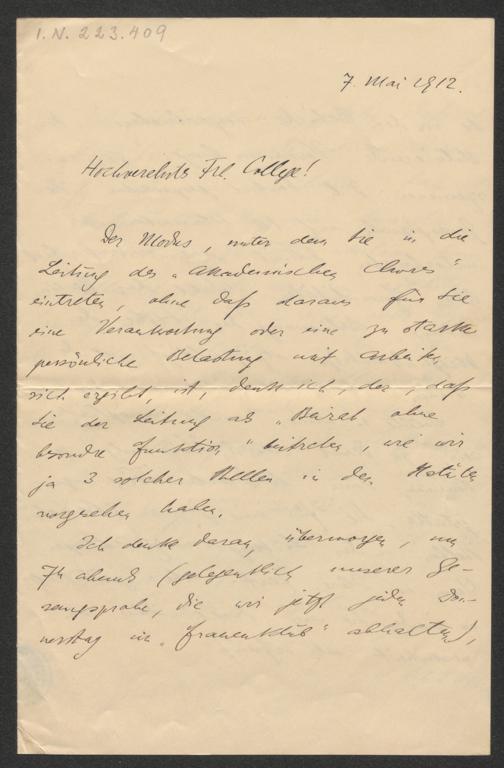 I.N. 223.409
7. Mai 1912.
Hochverehrtes Frl. College!
Der Modus, unter dem Sie in die
Leitung des „Akademischen Chores"
eintreten, ohne daß daraus für Sie
eine Verantwortung oder eine zu starke
persönliche Belastung mit Arbeiten
sich ergibt, ist, denke ich, der, daß
Sie der Leitung als „Beirat ohne
besondere Funktion" beitreten, wie wir
ja 3 solcher Stellen in den Statuten
vorgesehen haben.
Ich denke daran, übermorgen, um
7h abends (gelegentlich unserer Ge-
sangsprobe, die wir jetzt jeden Don-
nerstag im „Frauenklub" abhalten),